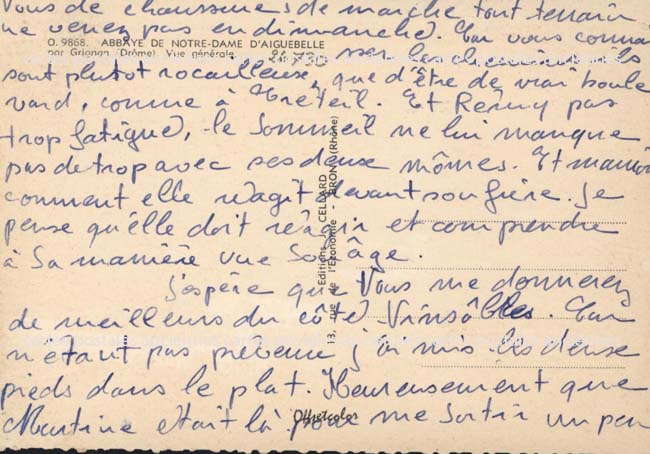 vous de chaussures de marche tout terrain
ne venez pas endimanché). Car vous connai
O. 9868. ABBAYE DE NOTRE-DAME D'AIGUEBELLE
par Grignan (Drôme). Vue générale.
ssez les ils
sont plutot rocailleuse, que d'être de vrai boule
vard, comme à Créteil. Et Rémy pas
trop fatigué, le sommeil ne lui manque
pas de trop avec ses deux mômes. Et
comment elle réagit devant son frère. Je
pense qu'elle doit réagir et comprendre
à sa manière vue son âge.
J'espère que Vous me donnerez
de meilleurs du côté Vinsobles. Car
n'étant pas prévenu j'ai mis les deux
pieds dans le plat. Heureusement que
Martine etait là pour me sortir un peu
Editions CELLARD
13, rue de l'Economie - BRON (Rhône)
Offsetcolor